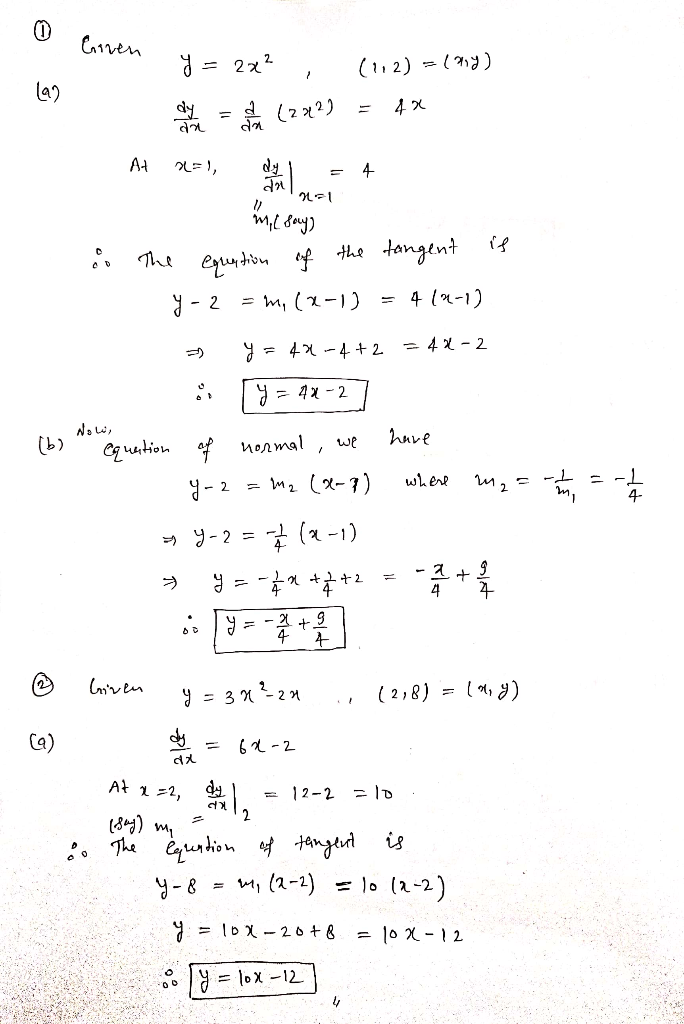 ① Given y = 2x² , (1,2) = (x,y)
(a) dy/dx = d/dx (2x²) = 4x
At x=1, dy/dx |x=1 = 4
" m₁ (say)
∴ The equation of the tangent is
y - 2 = m₁ (x-1) = 4 (x-1)
⇒ y = 4x - 4 + 2 = 4x - 2
∴ y = 4x - 2
(b) Now, equation of normal, we have
y - 2 = m₂ (x-1) where m₂ = -1/m₁ = -1/4
⇒ y - 2 = -1/4 (x-1)
⇒ y = -1/4 x + 1/4 + 2 = -x/4 + 9/4
∴ y = -x/4 + 9/4
② Given y = 3x² - 2x ., (2,8) = (x,y)
(a) dy/dx = 6x - 2
At x = 2, dy/dx |2 = 12 - 2 = 10
(say) m₁ =
∴ The equation of tangent is
y - 8 = m₁ (x-2) = 10 (x-2)
y = 10x - 20 + 8 = 10x - 12
∴ y = 10x - 12 "